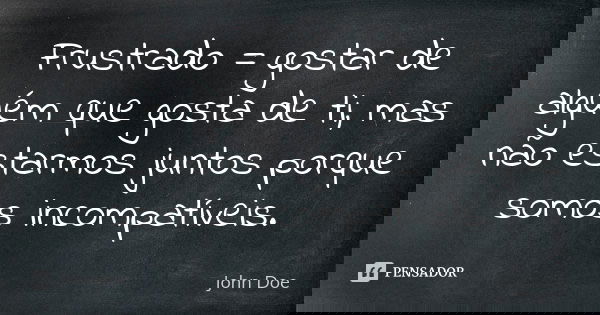 Frustrado = gostar de
alguém que gosta de ti, mas
não estarmos juntos porque
somos incompatíveis.
John Doe
PENSADOR